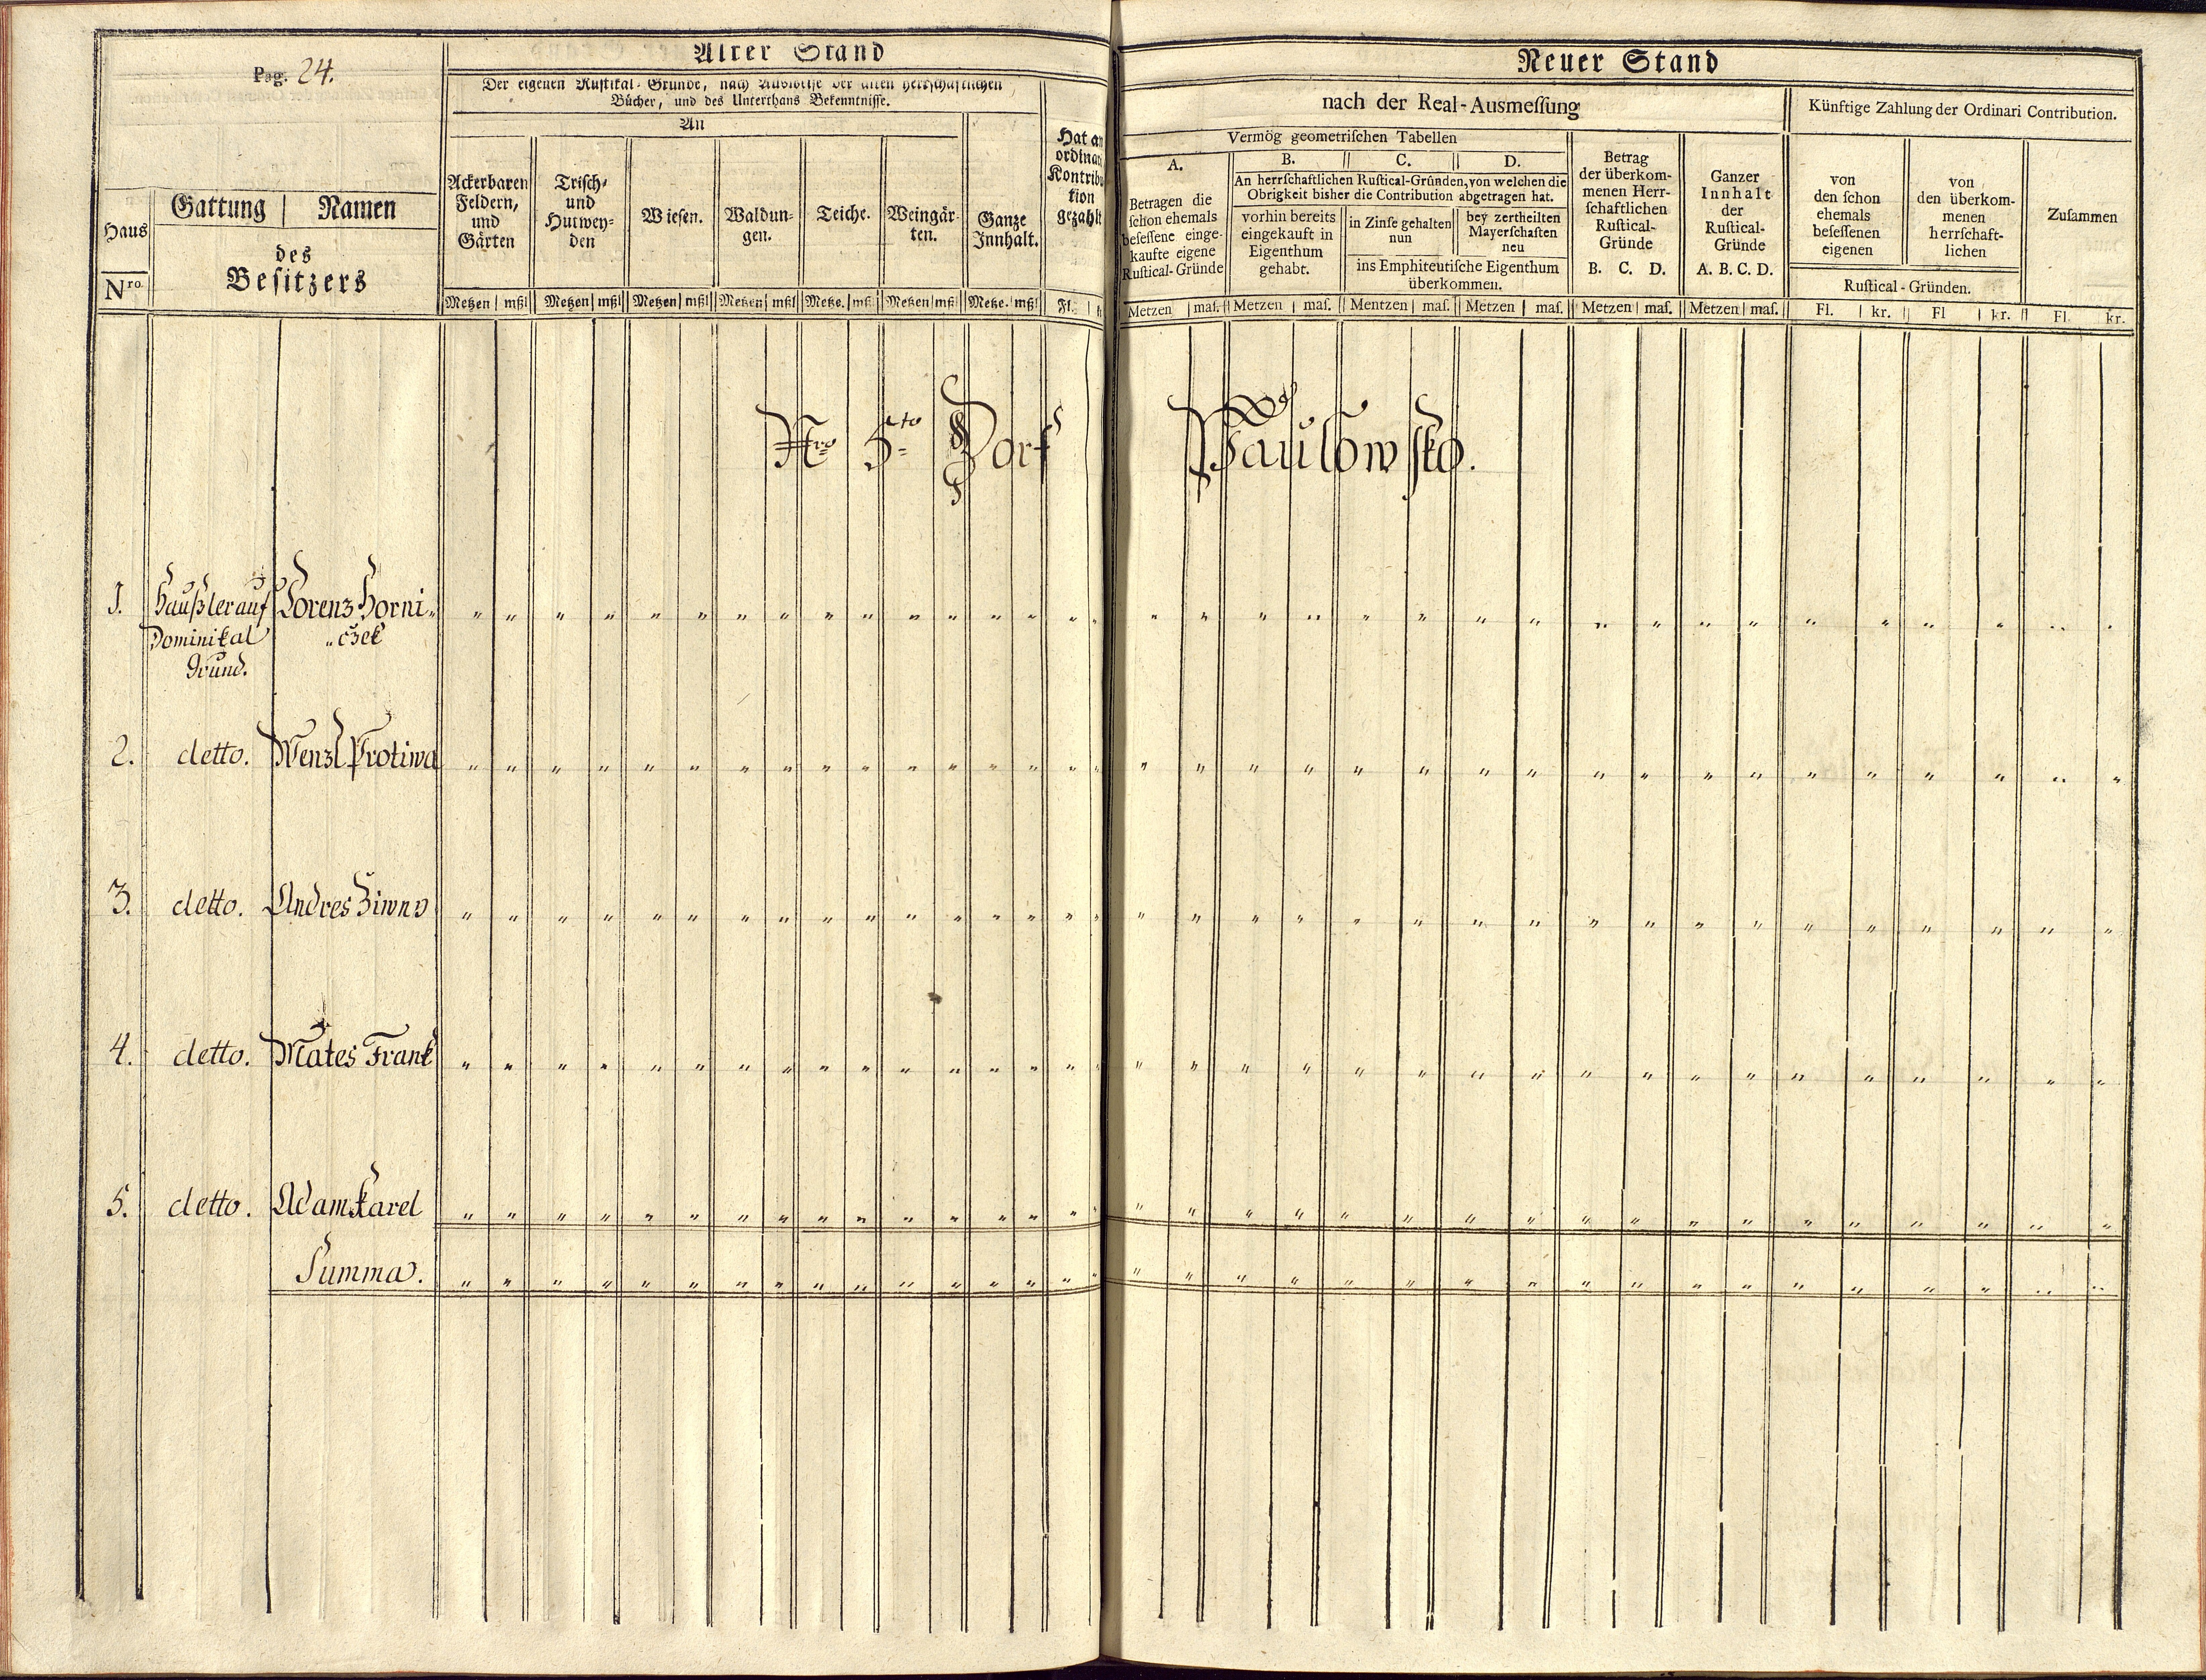 Pag. 24.
Alter Stand
Der eigenen Rustikal-Gründe, nach Ausweise der alten herrschaftlichen
Bücher, und des Unterthans Bekenntnisse.
An
Haus
Nro.
Gattung | Namen
des
Besitzers
Ackerbaren
Feldern,
und
Gärten
Trisch-
und
Hutwey-
den
Wiesen.
Waldun-
gen.
Teiche.
Weingär-
ten.
Ganze
Innhalt.
Hat an
ordinari
Kontribu
tion
gezahlt
Metzen | mßl Metzen | mßl Metzen | mßl Metzen | mßl Metze. | mßl Metzen | mßl Metze. | mßl Fl.
Neuer Stand
nach der Real-Ausmeſſung
Künftige Zahlung der Ordinari Contribution.
Vermög geometriſchen Tabellen
A.
Betragen die
ſchon ehemals
beſeſſene einge-
kaufte eigene
Ruſtical-Gründe
B. C. D.
An herrſchaftlichen Ruſtical-Gründen, von welchen die
Obrigkeit bisher die Contribution abgetragen hat.
vorhin bereits
eingekauft in
Eigenthum
gehabt.
in Zinſe gehalten
nun
bey zertheilten
Mayerſchaften
neu
ins Emphiteutiſche Eigenthum
überkommen.
Betrag
der überkom-
menen Herr-
ſchaftlichen
Ruſtical-
Gründe
B. C. D.
Ganzer
Innhalt
der
Ruſtical-
Gründe
A. B. C. D.
von
den ſchon
ehemals
beſeſſenen
eigenen
von
den überkom-
menen
herrſchaft-
lichen
Ruſtical-Gründen.
Zuſammen
Metzen | maſ. Metzen | maſ. Mentzen | maſ. Metzen | maſ. Metzen | maſ. Metzen | maſ. Fl. | kr. Fl | kr. Fl. kr.
Nro 5to Dorf Paulowsko.
1. Haußler auf Lorenz Horni„
Dominikal „czek
Grund.
2. detto. Wenzl Protiwa
3. detto. Andres Ziwny
4. detto. Mates Frank
5. detto. Adam Karel
Summa.